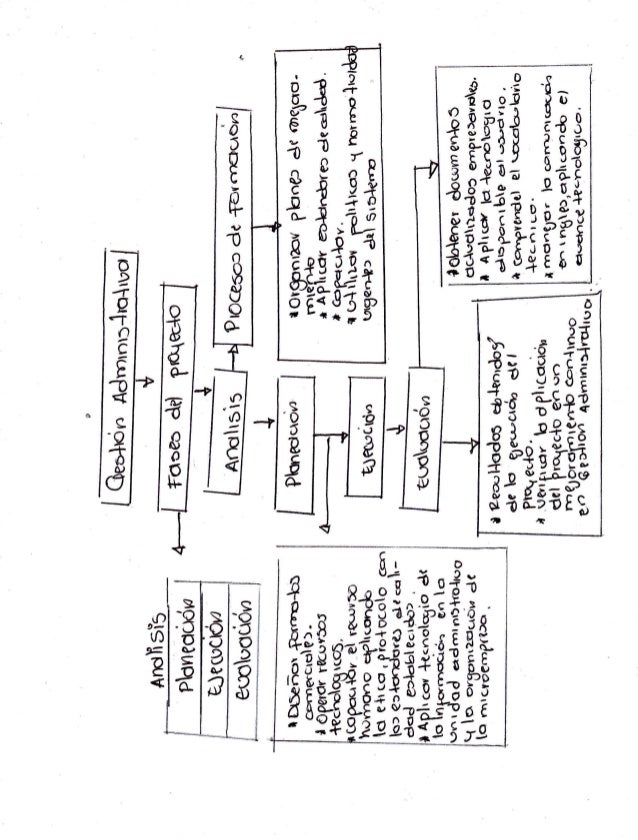 Gestión Administrativa
Fases del proyecto
Analisis
Planeación
Ejecución
evaluación
Analisis
Procesos de Formación
*Organizar planes de mejora-
miento
* Aplicar estandares de calidad.
* capacitar.
*utilizar politicas y normatividad
vigentes del sistema
Planeación
*Diseñar formatos
comerciales.
*Operar recursos
tecnologicos.
*Capacitar el recurso
humano aplicando
la etica, protocolo con
los estandares de cali-
dad establecidos.
*Aplicar tecnologia de
la información en la
unidad administrativo
y la organización de
la microempresa.
Ejecución
Evaluación
*Obtener documentos
actualizados empresariales.
* Aplicar la tecnologia
disponible al usuario.
*comprendel el vocabulario
tecnico.
*manejar la comunicación
en ingles, aplicando el
avance tecnologico.
*Resultados obtenidos
de la ejecución del
Proyecto.
* verificar la aplicación
del proyecto en un
mejoramiento continuo
en Gestion Administrativo